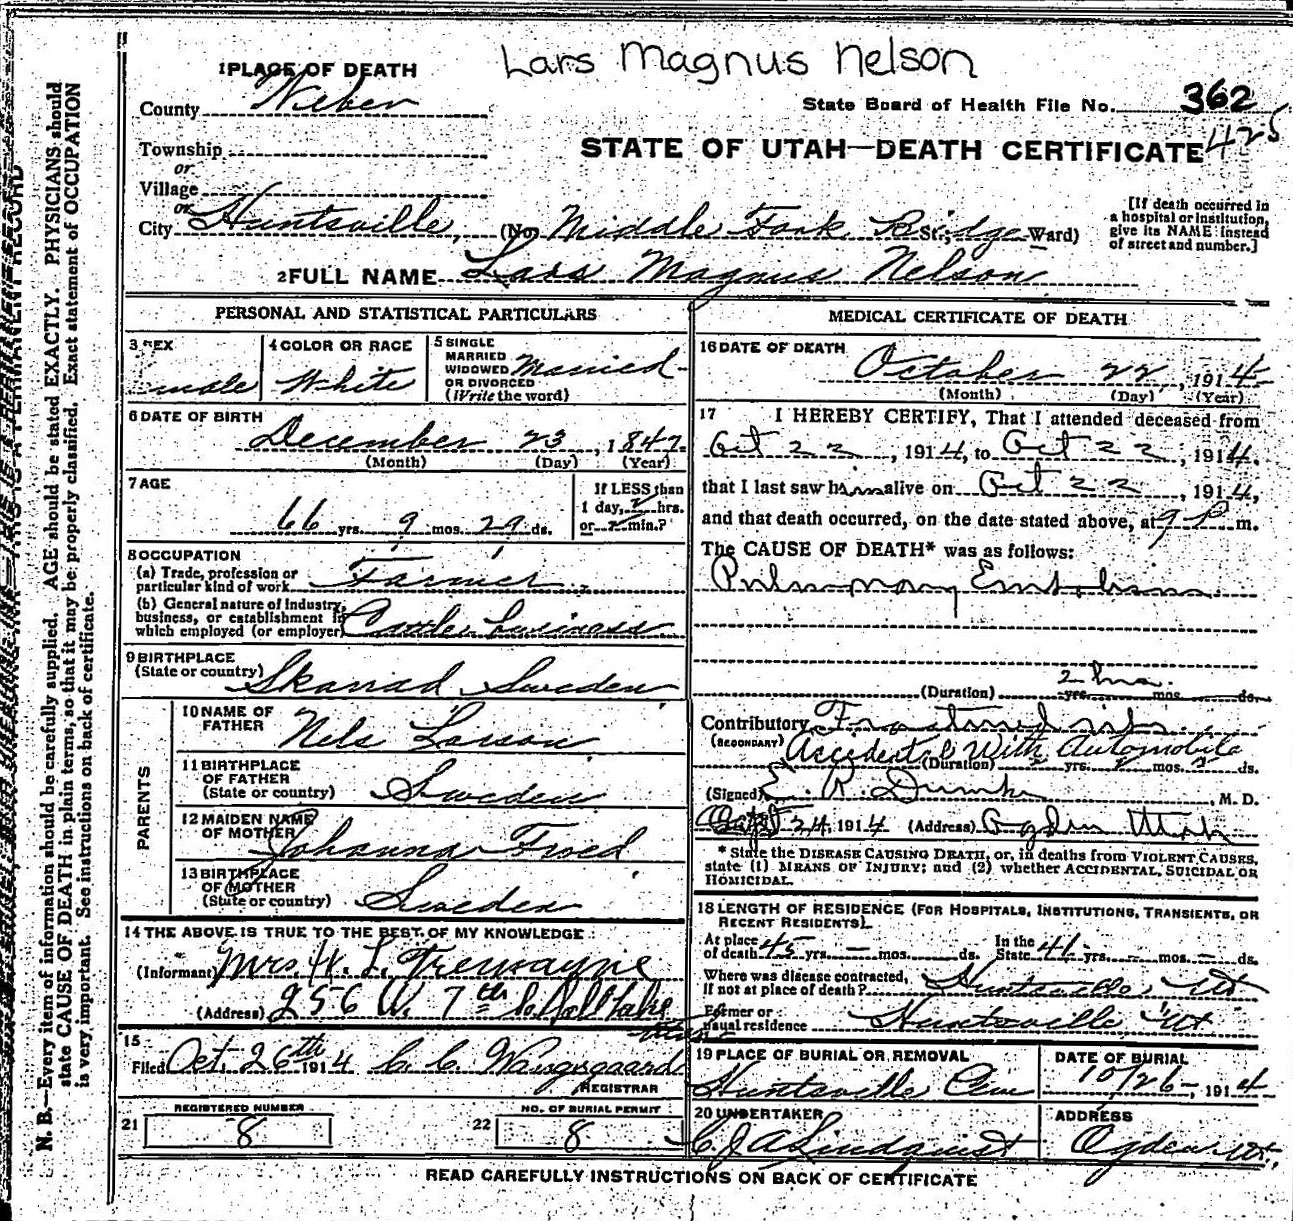 Lars Magnus Nelson
1 PLACE OF DEATH
County Weber
State Board of Health File No. 362
425
Township
or
Village
or
STATE OF UTAH—DEATH CERTIFICATE
City Huntsville, (No. Middle Fork Bridge St.; Ward)
[If death occurred in a hospital or institution, give its NAME instead of street and number.]
2 FULL NAME Lars Magnus Nelson
PERSONAL AND STATISTICAL PARTICULARS
3 SEX male
4 COLOR OR RACE White
5 SINGLE MARRIED WIDOWED OR DIVORCED (Write the word) Married
6 DATE OF BIRTH
December 23, 1847
(Month) (Day) (Year)
7 AGE
66 yrs. 9 mos. 29 ds.
If LESS than 1 day, hrs. or min.?
8 OCCUPATION
(a) Trade, profession or particular kind of work Farmer
(b) General nature of industry, business, or establishment in which employed (or employer) Cattle business
9 BIRTHPLACE
(State or country) Sweden
PARENTS
10 NAME OF FATHER Nels Larson
11 BIRTHPLACE OF FATHER (State or country) Sweden
12 MAIDEN NAME OF MOTHER Johanna
13 BIRTHPLACE OF MOTHER (State or country) Sweden
14 THE ABOVE IS TRUE TO THE BEST OF MY KNOWLEDGE
(Informant) Mrs W. L. Tremayne
(Address) 256 W. 7th So Salt Lake
15
Filed Oct. 26th 1914 C. C. Wangsgaard
REGISTRAR
REGISTERED NUMBER
21 8
NO. OF BURIAL PERMIT
22 8
MEDICAL CERTIFICATE OF DEATH
16 DATE OF DEATH
October 22, 1914
(Month) (Day) (Year)
17 I HEREBY CERTIFY, That I attended deceased from
Oct 22, 1914, to Oct 22, 1914.
that I last saw him alive on Oct 22, 1914,
and that death occurred, on the date stated above, at 9 P m.
The CAUSE OF DEATH* was as follows:
Pulmonary Embolism
(Duration) 2 hrs. yrs. mos. ds.
Contributory Fractured rib
(SECONDARY) Accidental With Automobile
(Duration) yrs. mos. ds.
(Signed) E. R. Dumke, M. D.
24, 1914 (Address) Ogden Utah
* State the DISEASE CAUSING DEATH, or, in deaths from VIOLENT CAUSES,
state (1) MEANS OF INJURY; and (2) whether ACCIDENTAL, SUICIDAL OR
HOMICIDAL.
18 LENGTH OF RESIDENCE (FOR HOSPITALS, INSTITUTIONS, TRANSIENTS, OR
RECENT RESIDENTS).
At place of death 45 yrs. mos. ds. In the State yrs. mos. ds.
Where was disease contracted, if not at place of death? Huntsville, Ut
Former or usual residence Huntsville Ut
19 PLACE OF BURIAL OR REMOVAL
Huntsville Cem
DATE OF BURIAL
10/26, 1914
20 UNDERTAKER
C. J. A. Lindquist
ADDRESS
Ogden Ut.
READ CAREFULLY INSTRUCTIONS ON BACK OF CERTIFICATE
N. B.—Every item of information should be carefully supplied. AGE should be stated EXACTLY. PHYSICIANS should
state CAUSE OF DEATH in plain terms, so that it may be properly classified. Exact statement of OCCUPATION
is very important. See instructions on back of certificate.